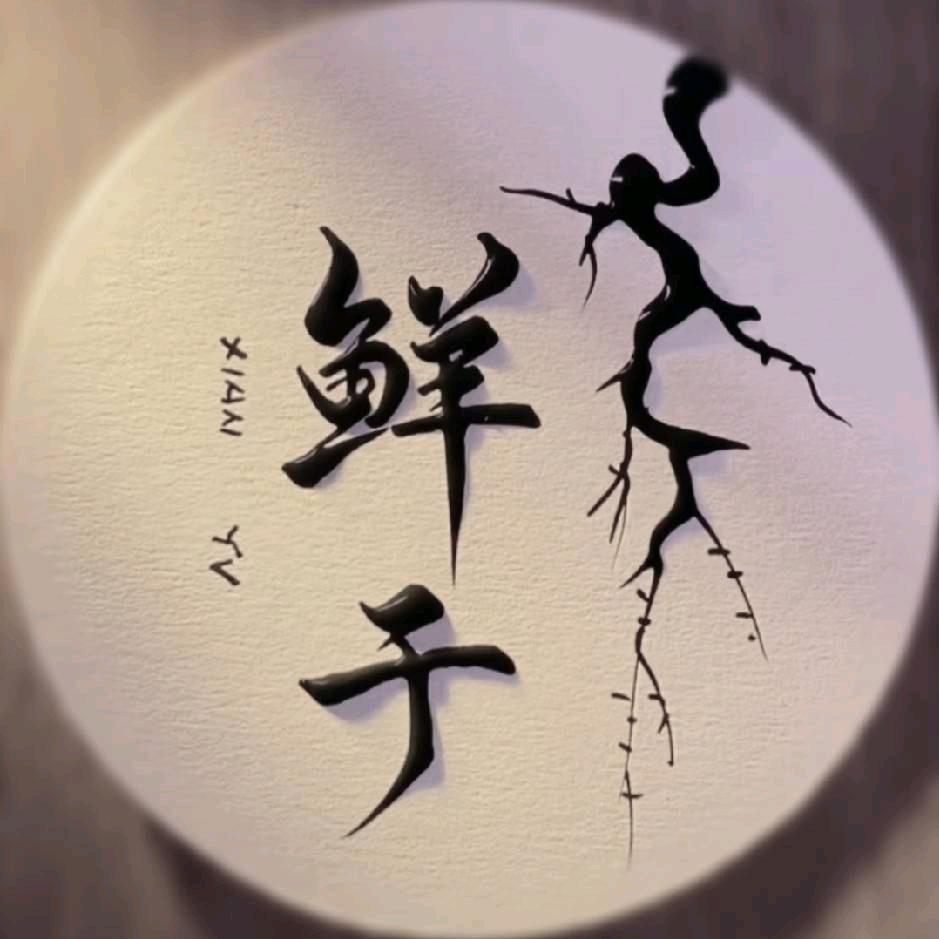 鲜子
XIAN YV